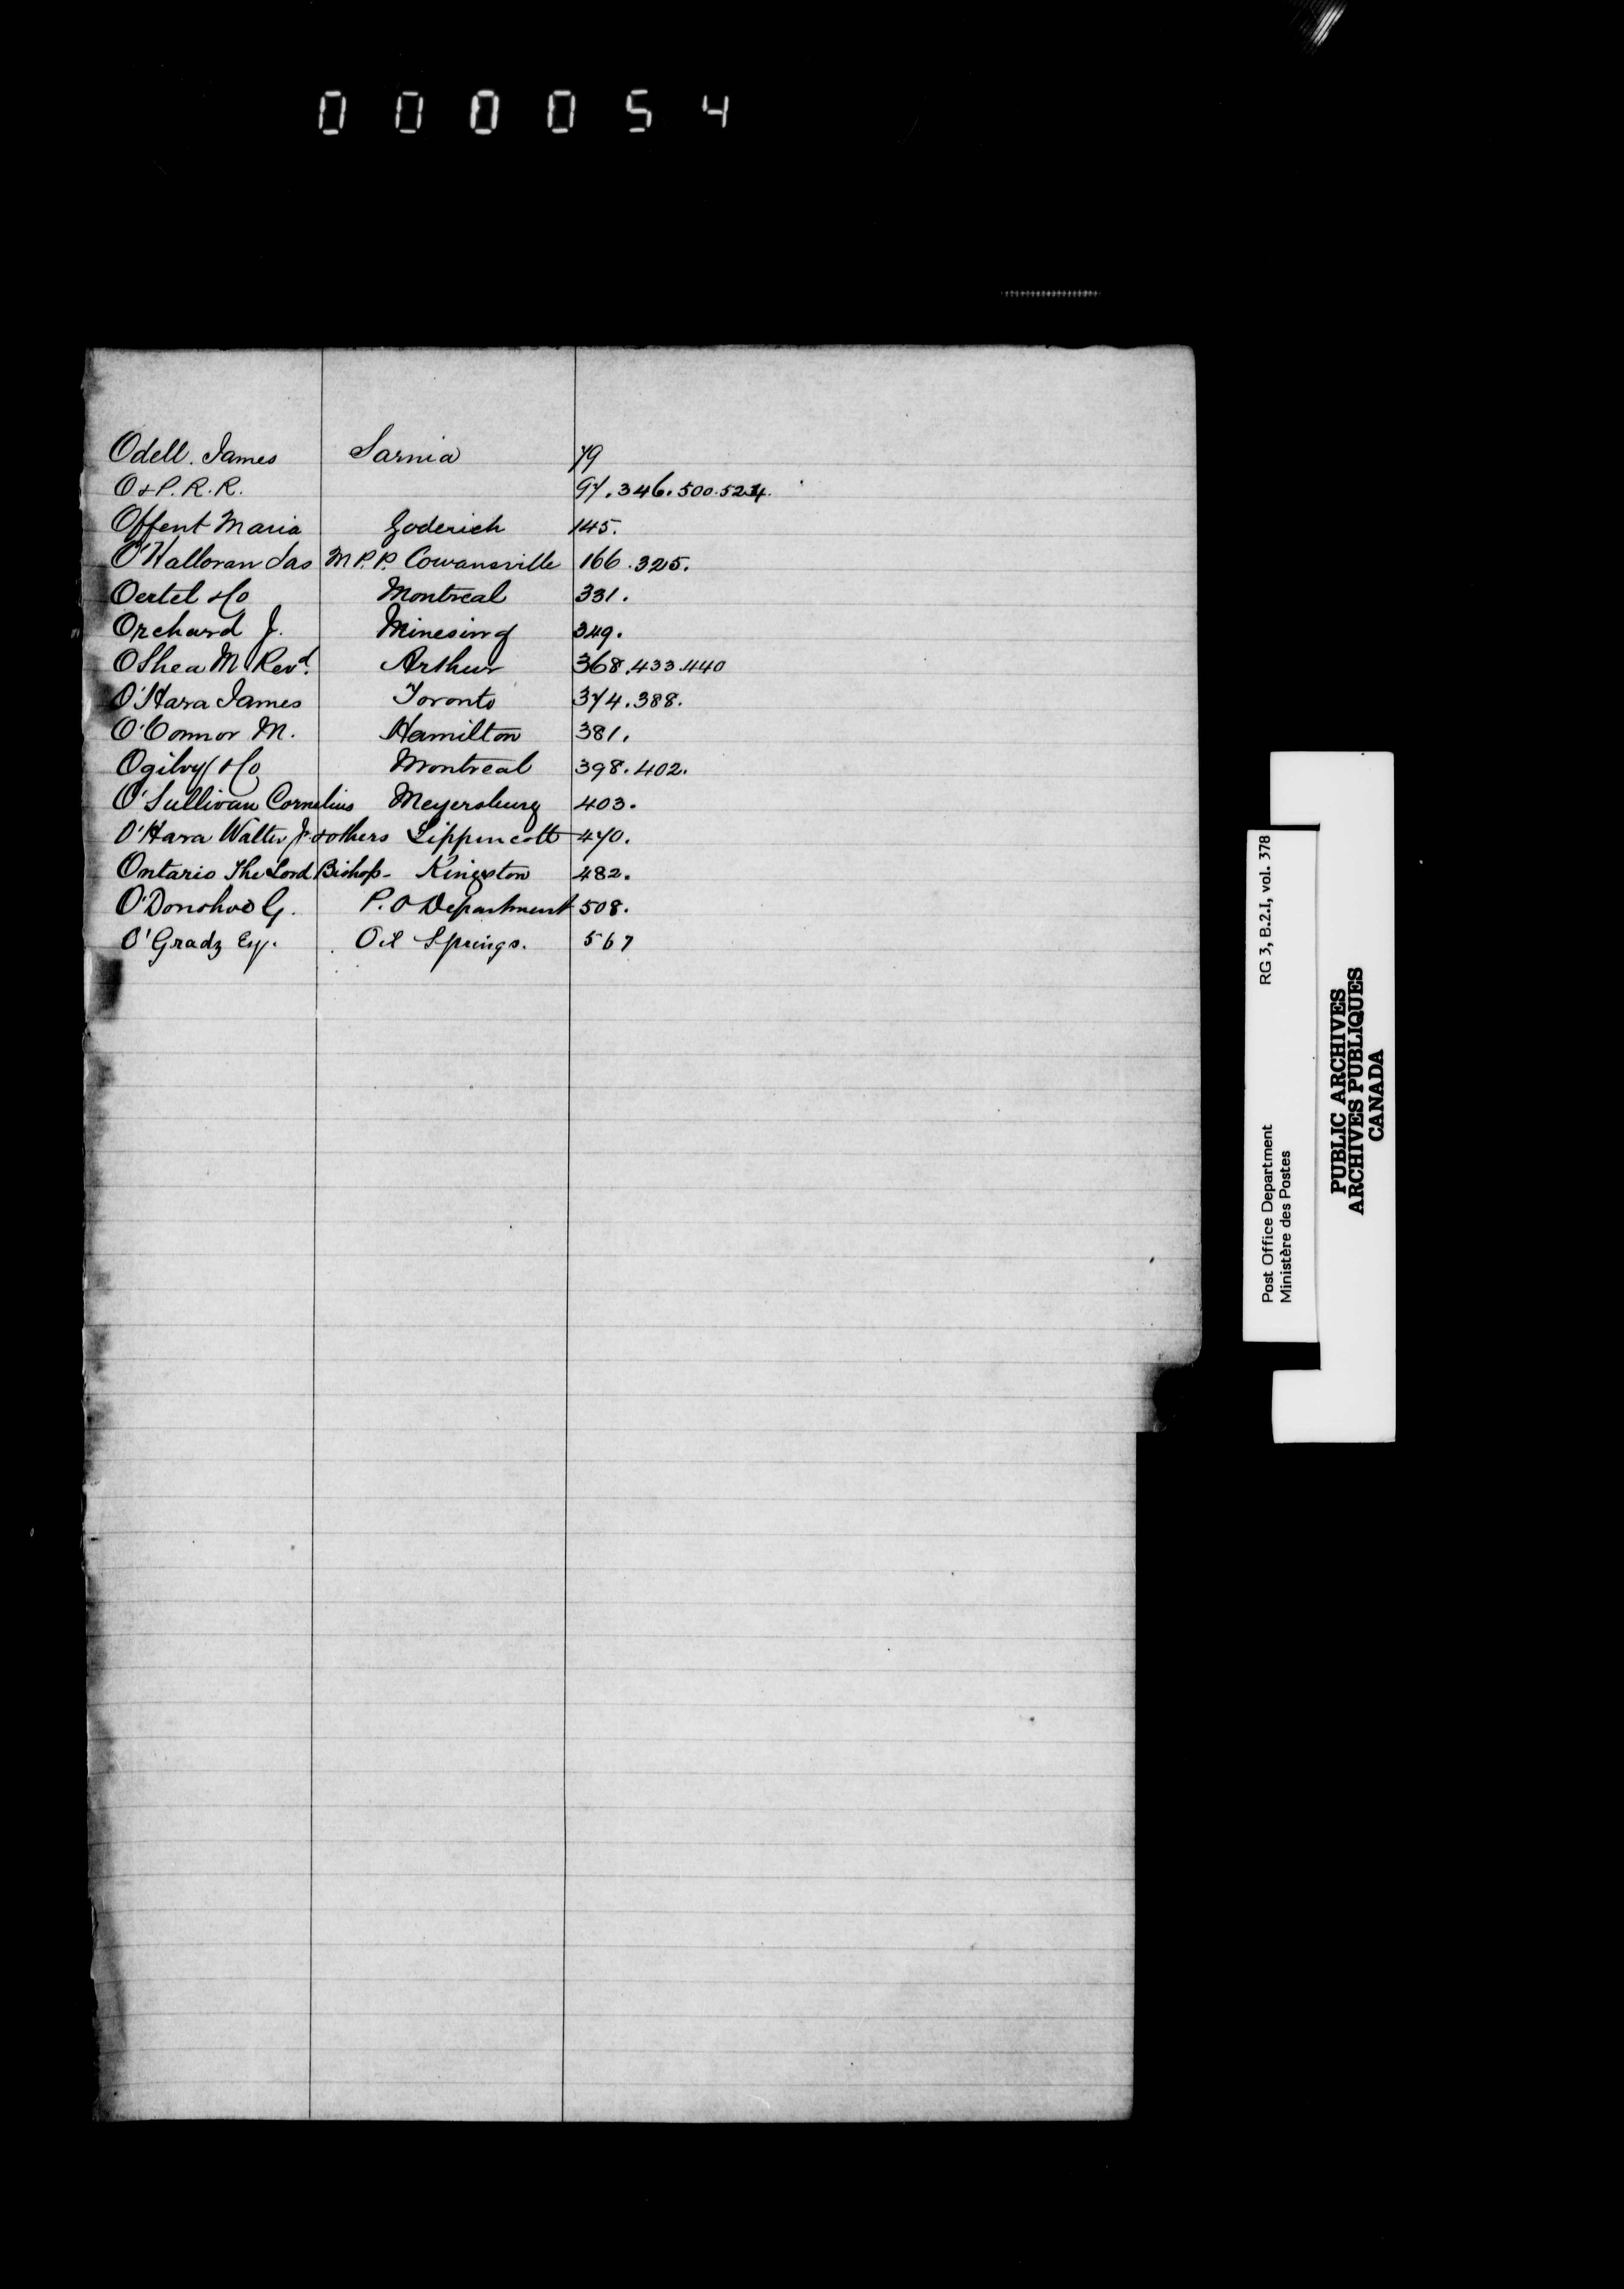 000054
Odell. James Sarnia 79
O & P. R. R. 97. 346. 500. 524.
Offent Maria Goderich 145.
O'Halloran Jas M.P.P. Cowansville 166. 325.
Oertel & Co Montreal 331.
Orchard J. Minesing 349.
OShea M Revd. Arthur 368. 433. 440
O'Hara James Toronto 374. 388.
O'Connor M. Hamilton 381.
Ogilvy & Co Montreal 398. 402.
O'Sullivan Cornelius Meyersburg 403.
O'Hara Walter Jr. & others Lippincott 470.
Ontario The Lord Bishop - Kingston 482.
O'Donohoe G. P. O Department 508.
O'Grady Esq. Oil Springs. 567
Post Office Department RG 3, B.2.I, vol. 378
Ministère des Postes
PUBLIC ARCHIVES
ARCHIVES PUBLIQUES
CANADA